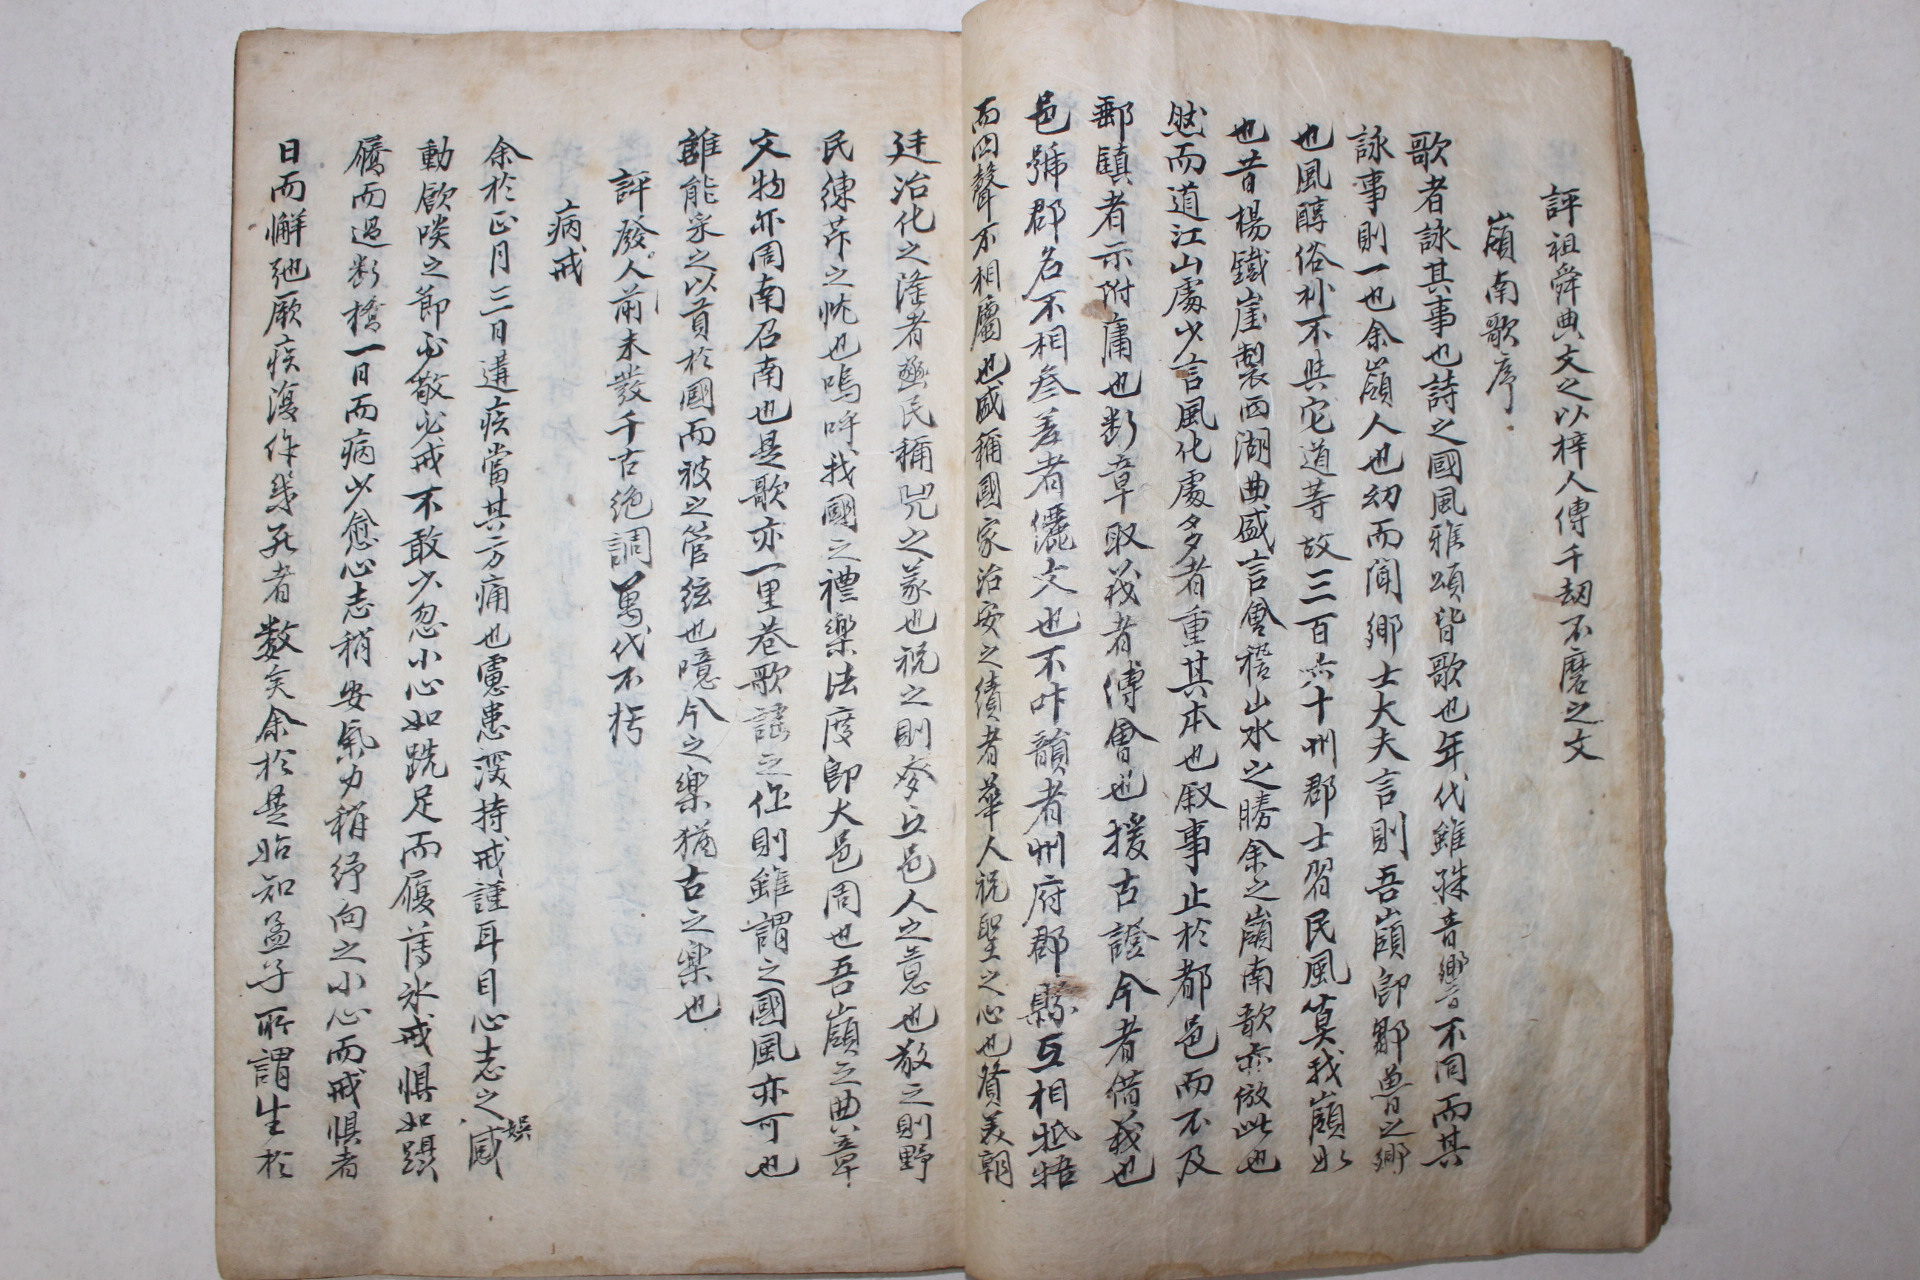 評祖舜典文之以梓人傳千劫不磨之文
嶺南歌序
歌者詠其事也詩之國風雅頌皆歌也年代雖殊音響不同而其
詠事則一也余嶺人也幼而聞鄉士大夫言則吾嶺卽鄒魯之鄉
也風醇俗朴不與它道等故三百六十州郡士習民風莫我嶺如
也昔楊鐵崖製西湖曲盛言會稽山水之勝余之嶺南歌亦倣此也
然而道江山處少言風化處多者重其本也叙事止於都邑而不及
郵鎭者示附庸也斷章取義者傅會也援古證今者借義也
邑號郡名不相叅差者儷文也不叶韻者州府郡縣互相牴牾
而四聲不相屬也盛稱國家治安之績者華人祝聖之心也贊美朝
廷治化之隆者蒸民稱兕之義也祝之則麥丘邑人之意也敎之則野
民練芹之忱也嗚呼我國之禮樂法度卽大邑周也吾嶺之曲章
文物亦周南召南也是歌亦一里巷歌謠之作則雖謂之國風亦可也
誰能采之以貢於國而被之管弦也噫今之樂猶古之樂也
評發人前未發千古絶調萬代不朽
病戒
余於正月三日遘疾當其方痛也慮患深持戒謹耳目心志之娛
動飮啖之節必敬必戒不敢少忽小心如跣足而履薄氷戒惧如躡
屩而過斷橋一日而病少愈心志稍安氣力稍紓向之小心而戒惧者
日而懈弛厥疾復作幾死者數矣余於是始知孟子所謂生於